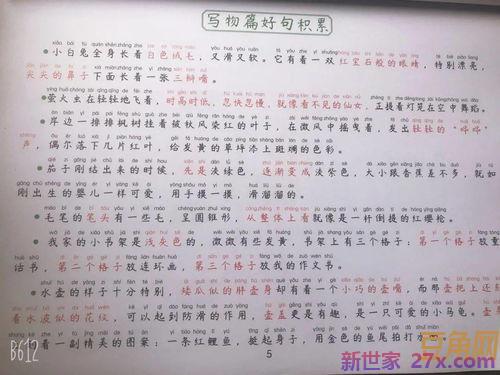 写物篇好句积累
小白兔全身长着白色绒毛，又滑又软。它有着一双红宝石般的眼睛，特别漂亮，
尖尖的鼻子下面长着一张三瓣嘴。
萤火虫在轻轻地飞着，时高时低，忽快忽慢，就像看不见的仙女，正提着灯笼在空中舞蹈。
岸边一排排枫树挂着被秋风染红的叶子，在微风中摇曳着，发出轻轻的“哗哗”
声，偶尔落下几片红叶，给发黄的草坪添上斑斓的色彩。
茄子刚结出来的时候，先是淡绿色，逐渐变成淡紫色，大小跟蚕蛋差不多，就如
刚出生的婴儿一样可爱，用手摸一摸，滑溜溜的。
毛笔的笔头有一些毛，呈圆锥形，从整体上看就像是一杆倒提的红缨枪。
我家的小书架是浅灰色的，微微有些发黄，书架上有三个格子：第一个格子放
话书，第二个格子放连环画，第三个格子放我的作文书。
水壶的样子十分特别，矮瓜似的胖壶身却有着一个小巧的壶嘴，而那壶把上还
着水波似的花纹，可以起到防滑的作用，壶盖更是有趣，是一只小小的月龟。
着一副精美的图案：一条红鲤鱼，挺起身子，用金色的鱼尾拍打水
5
B612
豆角网
新世家 27x.com